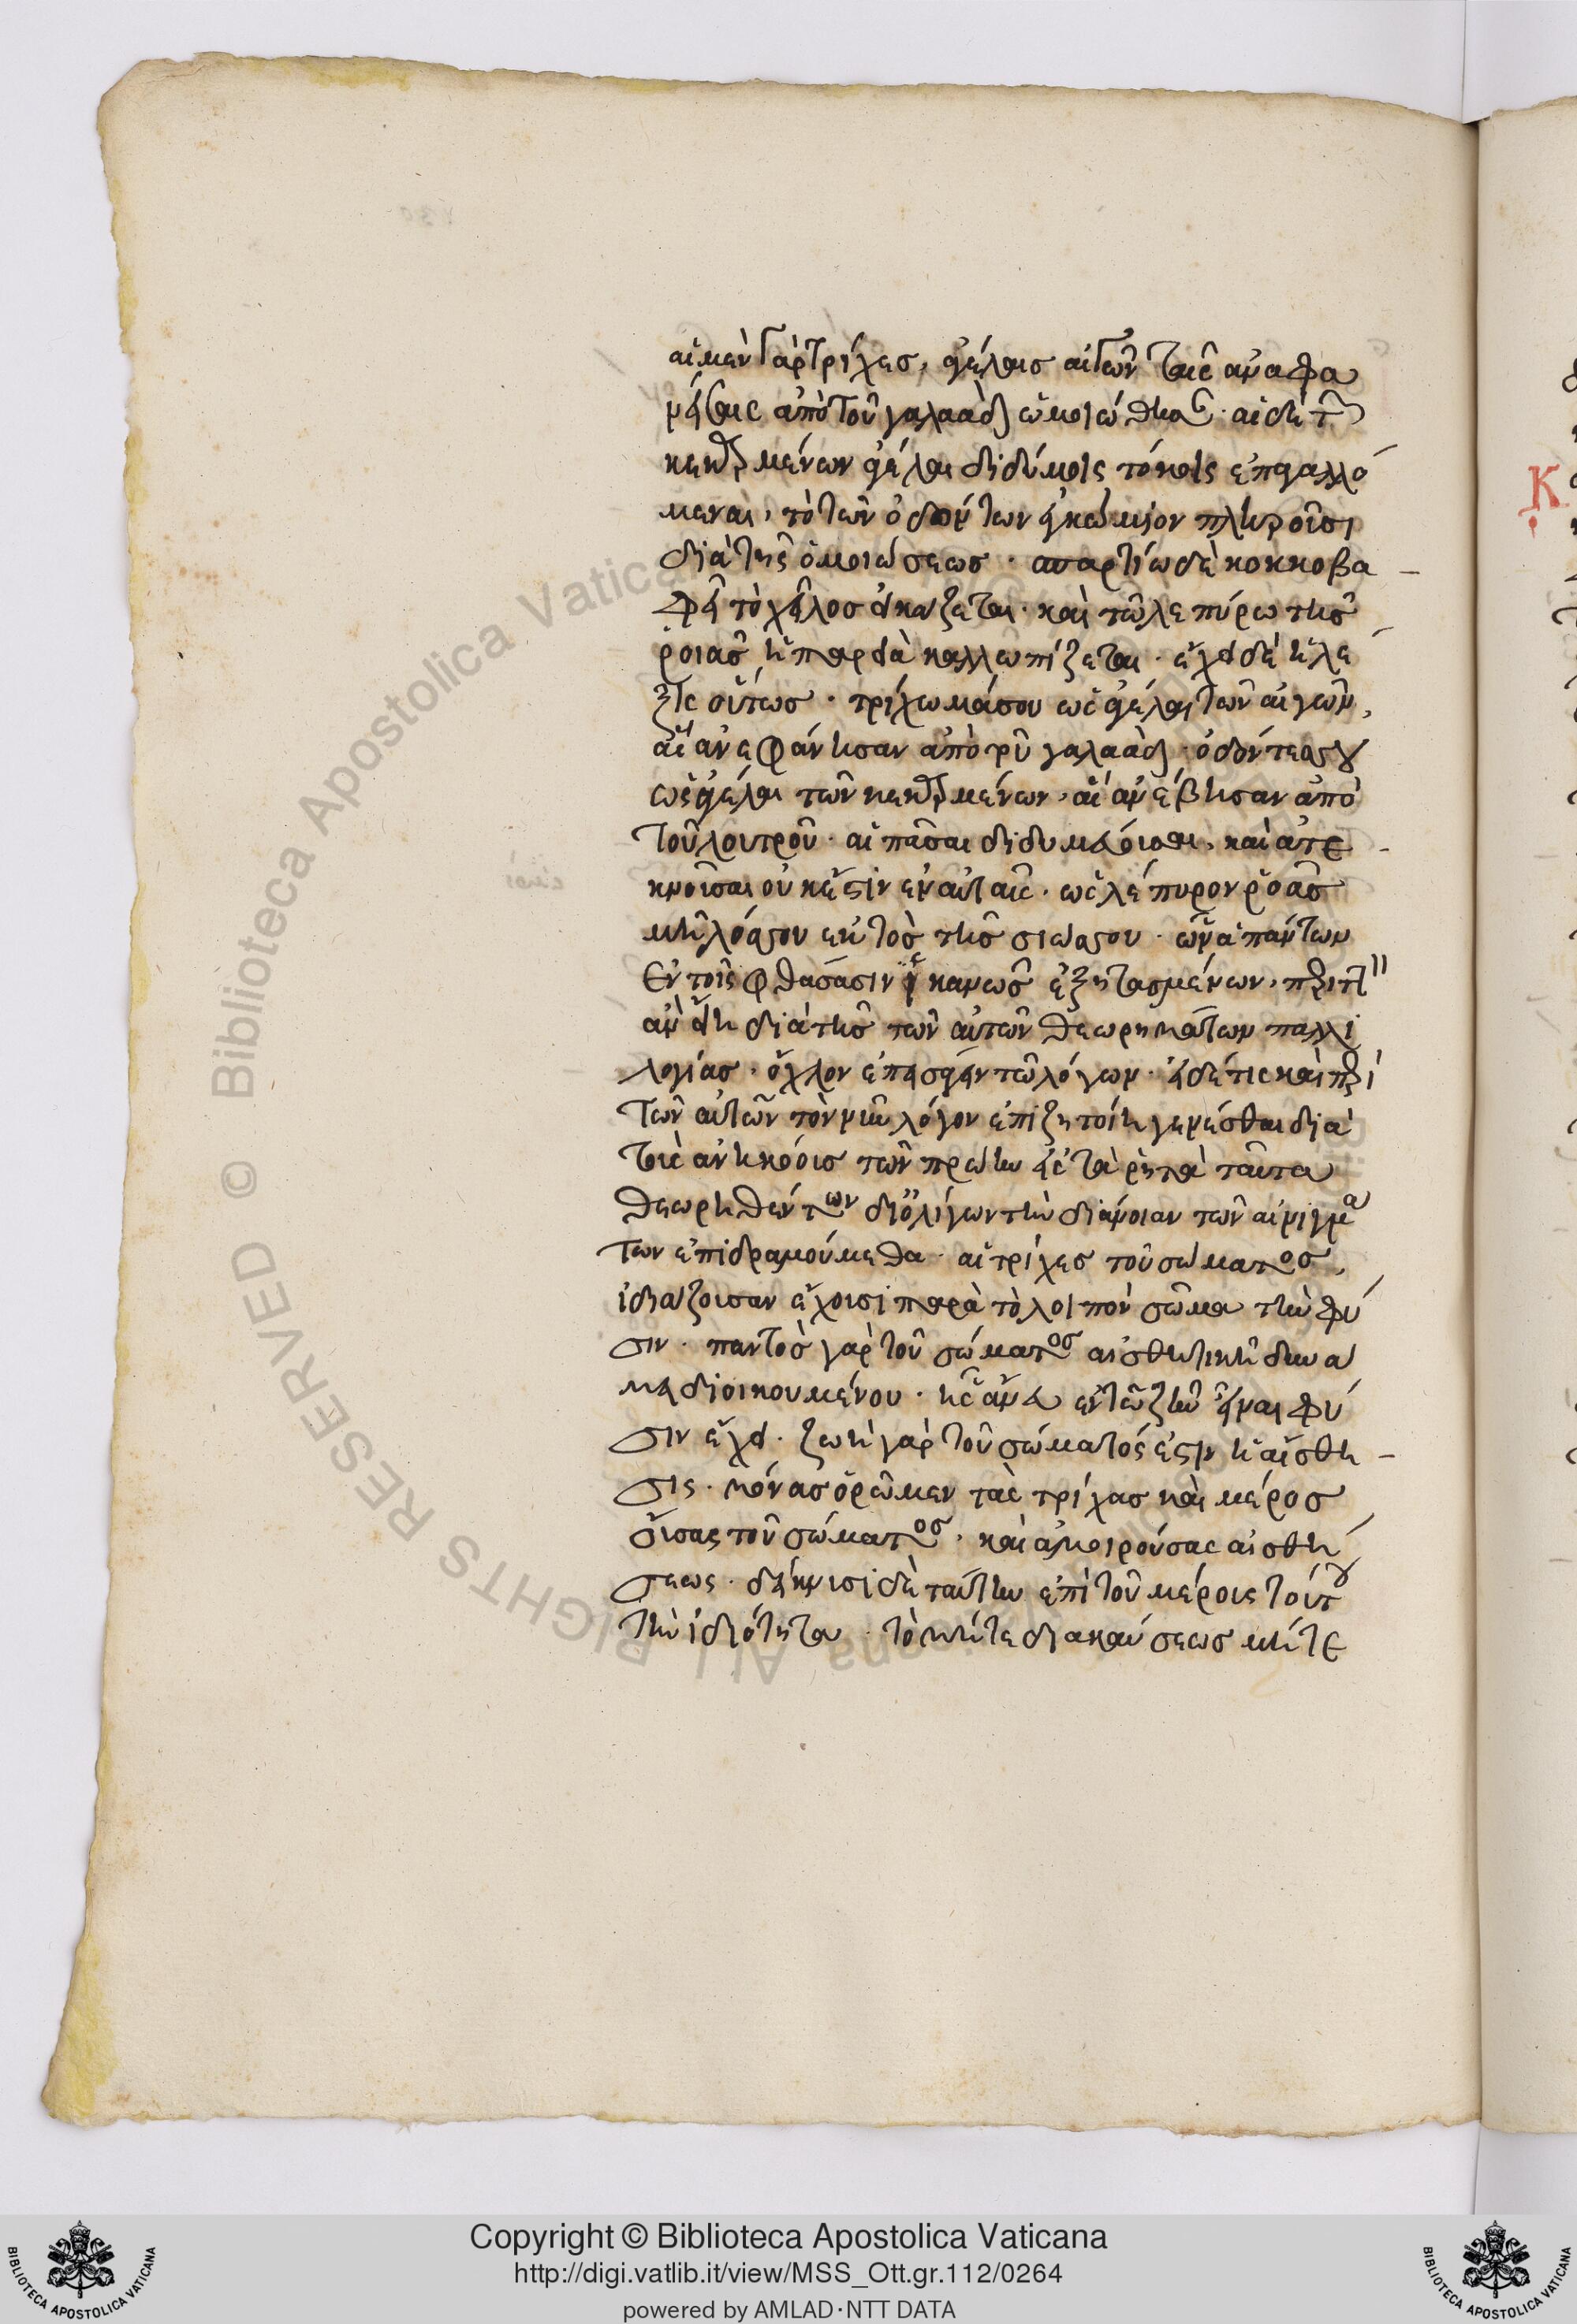 αἱ μὲν γὰρ τρίχες, ἀγέλαις αἰγῶν ταῖς ἀναφα
νείσαις ἀπὸ τοῦ γαλαὰδ ὡμοιώθησ· αἱ δὲ τ
κεκαρμένων ἀγέλαι διδύμοις τόκοις ἐπαγαλλό
μεναι, τὸ τῶν ὀδόντων ἐγκώμιον πληροῦσι
διὰ τῆς ὁμοιώσεως· σπαρτίω δὲ κοκκοβα
φεῖ τὸ χεῖλος εἰκάζεται· καὶ τῶ λεπύρω τῆς
ῥοιᾶς ἡ παρειὰ καλλωπίζεται· ἔχει δὲ ἡ λέ
ξις οὕτως· τρίχωμά σου ὡς ἀγέλαι τῶν αἰγῶν,
αἳ ἀνεφάνησαν ἀπὸ τοῦ γαλαάδ· ὀδόντες σου
ὡς ἀγέλαι τῶν κεκαρμένων, αἳ ἀνέβησαν ἀπὸ
τοῦ λουτροῦ· αἱ πᾶσαι διδυμεύουσαι, καὶ ἀτε
κνοῦσα οὐκ ἔστιν ἐν αὐταῖς· ὡς λέπυρον ῥοᾶς
μῆλόν σου ἐκτὸς τῆς σιωπῆς σου· ὧν ἁπάντων
ἐν τοῖς φθάσασιν ἱκανῶς ἐξητασμένων, περιττ
ἂν εἴη διὰ τῆς τῶν αὐτῶν θεωρημάτων παλλι
λογίας· ὄχλον ἐπεισάγειν τῶ λόγω· εἰ δέ τις καὶ περὶ
τῶν αὐτῶν τὸν νῦν λόγον ἐπιζητοίη γενέσθαι διὰ
τοὺς ἀνηκόους τῶν πρώην εἰς τὰ ῥητὰ ταῦτα
θεωρηθέντων δι' ὀλίγων τὴν διάνοιαν τῶν αἰνιγμά
των ἐπιδραμούμεθα· αἱ τρίχες τοῦ σώματος,
ἰδιάζουσαν ἔχουσι παρὰ τὸ λοιπὸν σῶμα τὴν φύ
σιν· παντὸς γὰρ τοῦ σώματος αἰσθητικῆ δυνά
μει διοικουμένου· ἧς ἄνευ ἐν τῶ ζῆν εἶναι φύ
σιν ἔχει· ζωὴ γὰρ τοῦ σώματός ἐστιν ἡ αἴσθη
σις· μόνας ὁρῶμεν τὰς τρίχας καὶ μέρος
οὔσας τοῦ σώματος, καὶ ἀμοιρούσας αἰσθή
σεως· δείκνυσι δὲ ταύτην ἐπὶ τοῦ μέρους τούτου
τὴν ἰδιότητα· τὸ μήτε διὰ καύσεως μήτε
Copyright © Biblioteca Apostolica Vaticana
http://digi.vatlib.it/view/MSS_Ott.gr.112/0264
powered by AMLAD·NTT DATA